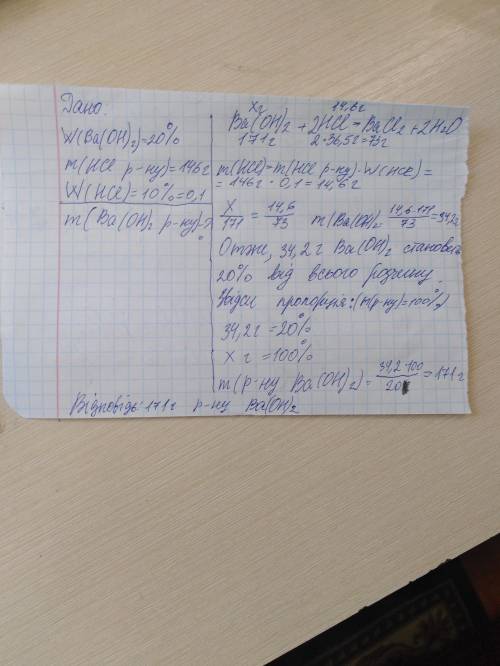 Дано.
W(Ba(OH)₂)=20%
m(HCl р-ну)=146г
W(HCl)=10%=0,1
m(Ba(OH)₂ р-ну)-?
Xг 14,6г
Ba(OH)₂ +2HCl=BaCl₂+2H₂O
171г 2·36,5г=73г
m(HCl)=m(HCl р-ну)·W(HCl)=
=146г·0,1=14,6г
X/171 = 14,6/73 m(Ba(OH)₂) 14,6·171/73=34,2г
Отже, 34,2 г Ba(OH)₂ становить
20% від всього розчину.
Звідси пропорція:(m(р-ну)=100%)
34,2г=20%
X г =100%
m(р-ну Ba(OH)₂)= 34,2·100/20=171г
Відповідь:171г р-ну Ba(OH)₂